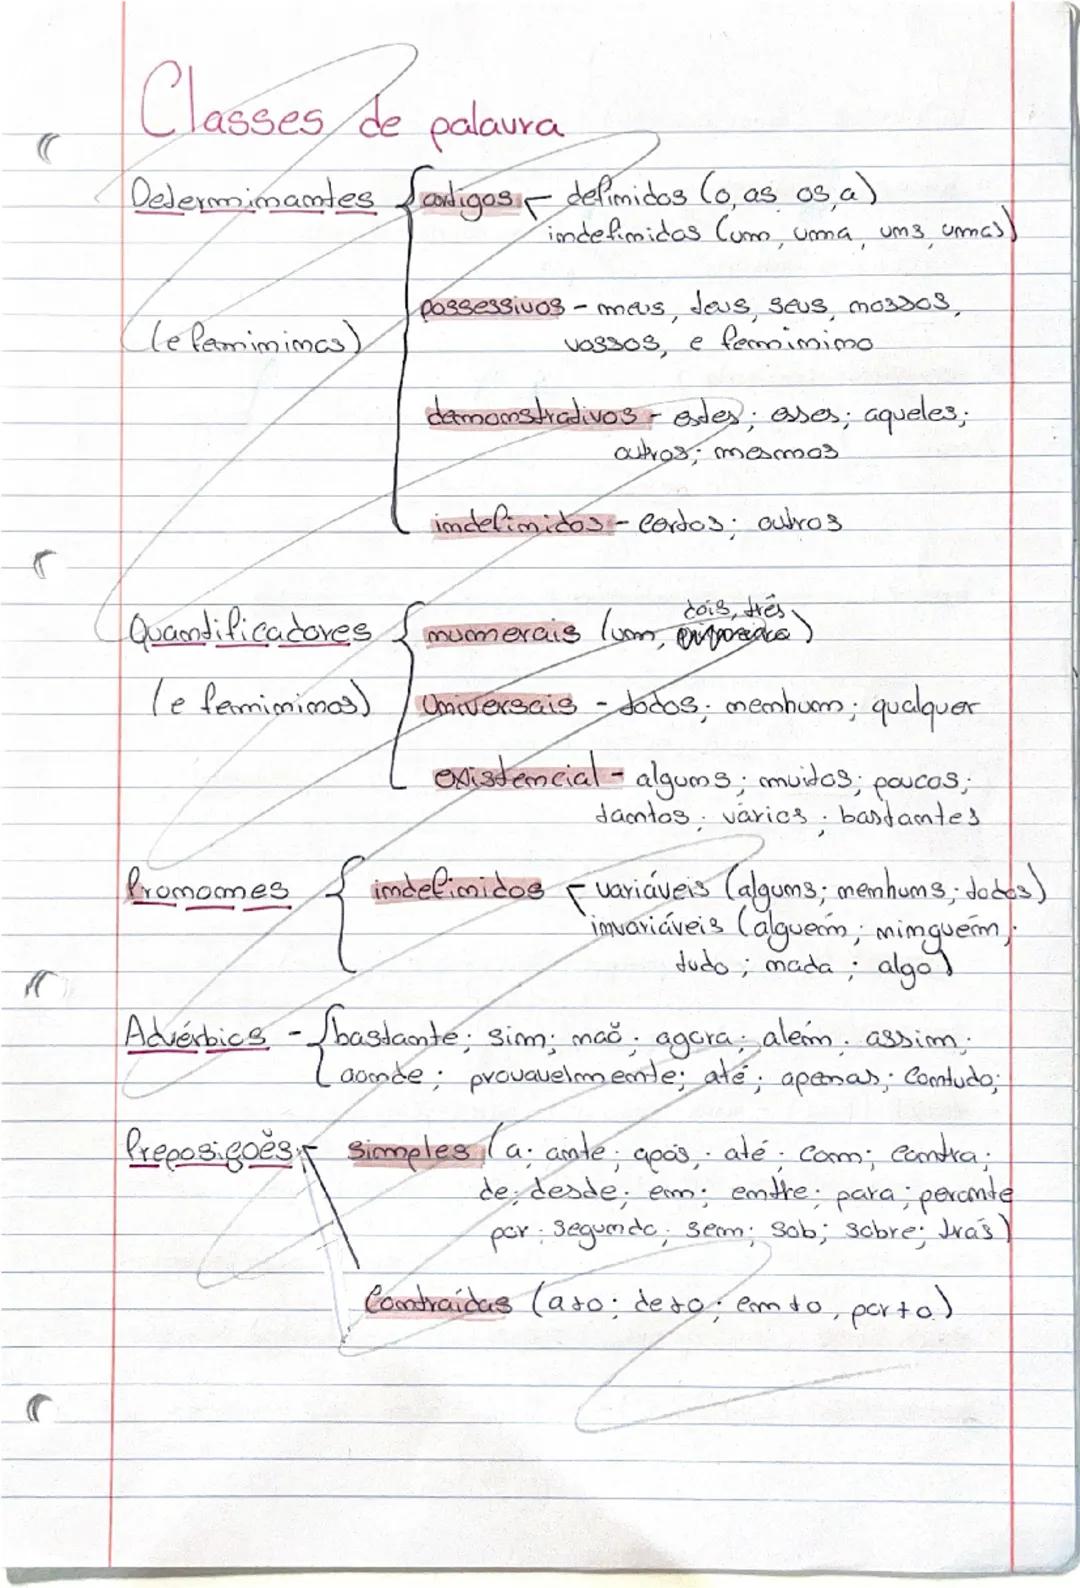 Classes de palavra
Determinantes { artigos - definidos (o, as, os, a)
indefinidos (um, uma, uns, umas)
possessivos - meus, teus, seus, nossos,
(e femininos) vossos, e feminino
demonstrativos - estes; esses; aqueles;
outros; mesmos
indefinidos - certos; outros
dois, três
Quantificadores { numerais (um, )
(e femininos) Universais - todos; nenhum; qualquer
existencial - alguns; muitos; poucos;
tantos; vários; bastantes
Pronomes { indefinidos - variáveis (alguns; nenhuns; todos)
invariáveis (alguém; ninguém;
tudo; nada; algo)
Advérbios - { bastante; sim; não; agora; além; assim;
aonde; provavelmente; até; apenas; Contudo;
Preposições simples (a; ante; após; até; com; contra;
de; desde; em; entre; para; perante
por; segundo; sem; sob; sobre; trás)
Contraídas (a+o; de+o; em+o, por+o)